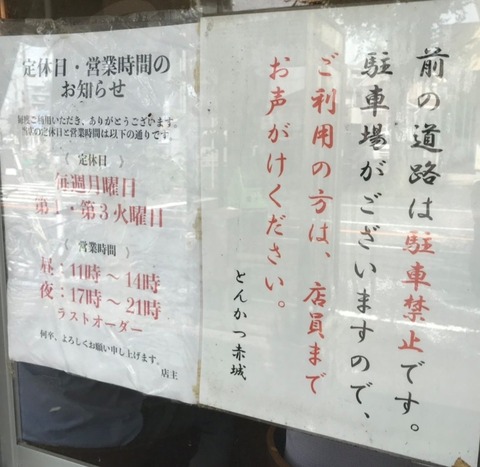 定休日・営業時間の
お知らせ
毎度ご利用いただき、ありがとうございます。
当店の定休日と営業時間は以下の通りです。
（ 定休日 ）
毎週月曜日
第1・第3火曜日
（ 営業時間 ）
昼：11時～14時
夜：17時～21時
ラストオーダー
何卒、よろしくお願い申し上げます。
店主
前の道路は駐車禁止です。
駐車場がございますので、
ご利用の方は、店員まで
お声がけください。
とんかつ赤城